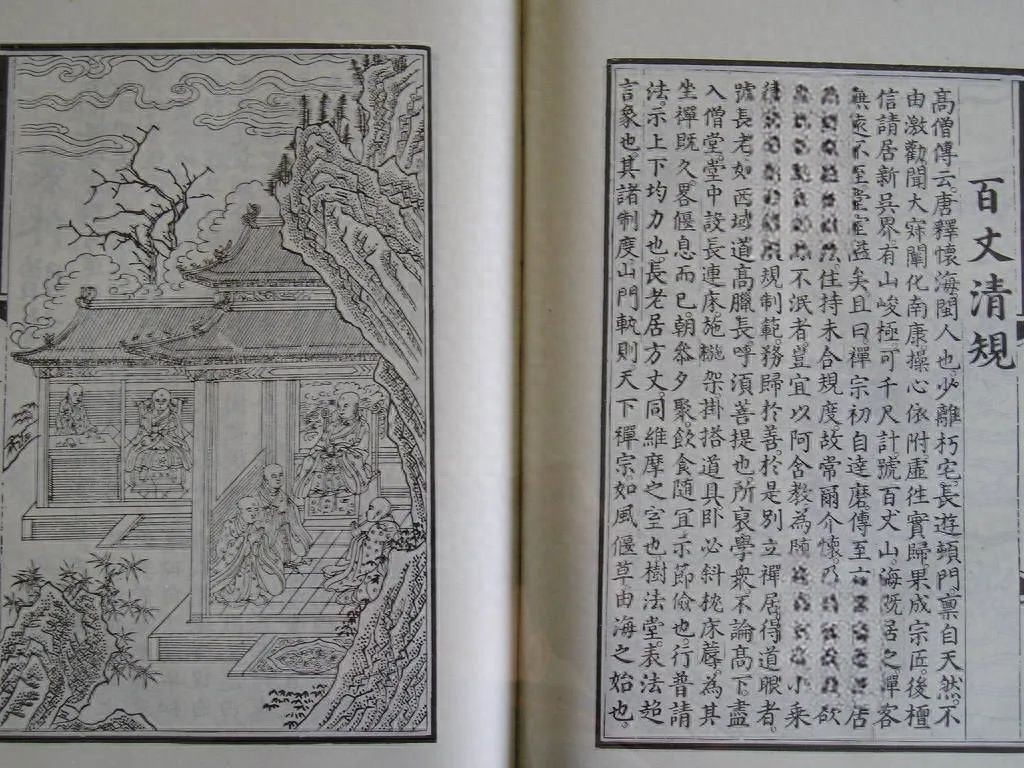 百丈清規
高僧傳云。唐釋懷海閩人也。少離朽宅。長遊頓門。稟自天然。不
由激勸。聞大寂闡化南康。操心依附。虛往實歸。果成宗匠。後檀
信請居新吳界。有山峻極。可千尺計。號百丈山。海既居之。禪客
無遠不至。堂室隘矣。且曰。禪宗初自達磨傳至六居
住持未合規度。故常爾介懷。欲
不泯者。豈宜以阿含教為小乘
規制範。務歸於善。於是別立禪居。得道眼者。
號長老。如西域道高臘長呼須菩提也。所裒學衆。不論高下。盡
入僧堂。堂中設長連床。施椸架。掛搭道具。臥必斜枕床為其
坐禪既久。畧偃息而已。朝參夕聚。飲食隨宜。示節儉也。行普請
法。示上下均力也。長老居方丈。同維摩之室也。樹法堂。表法超
言象也。其諸制度山門軌則。天下禪宗。如風偃草。由海之始也。